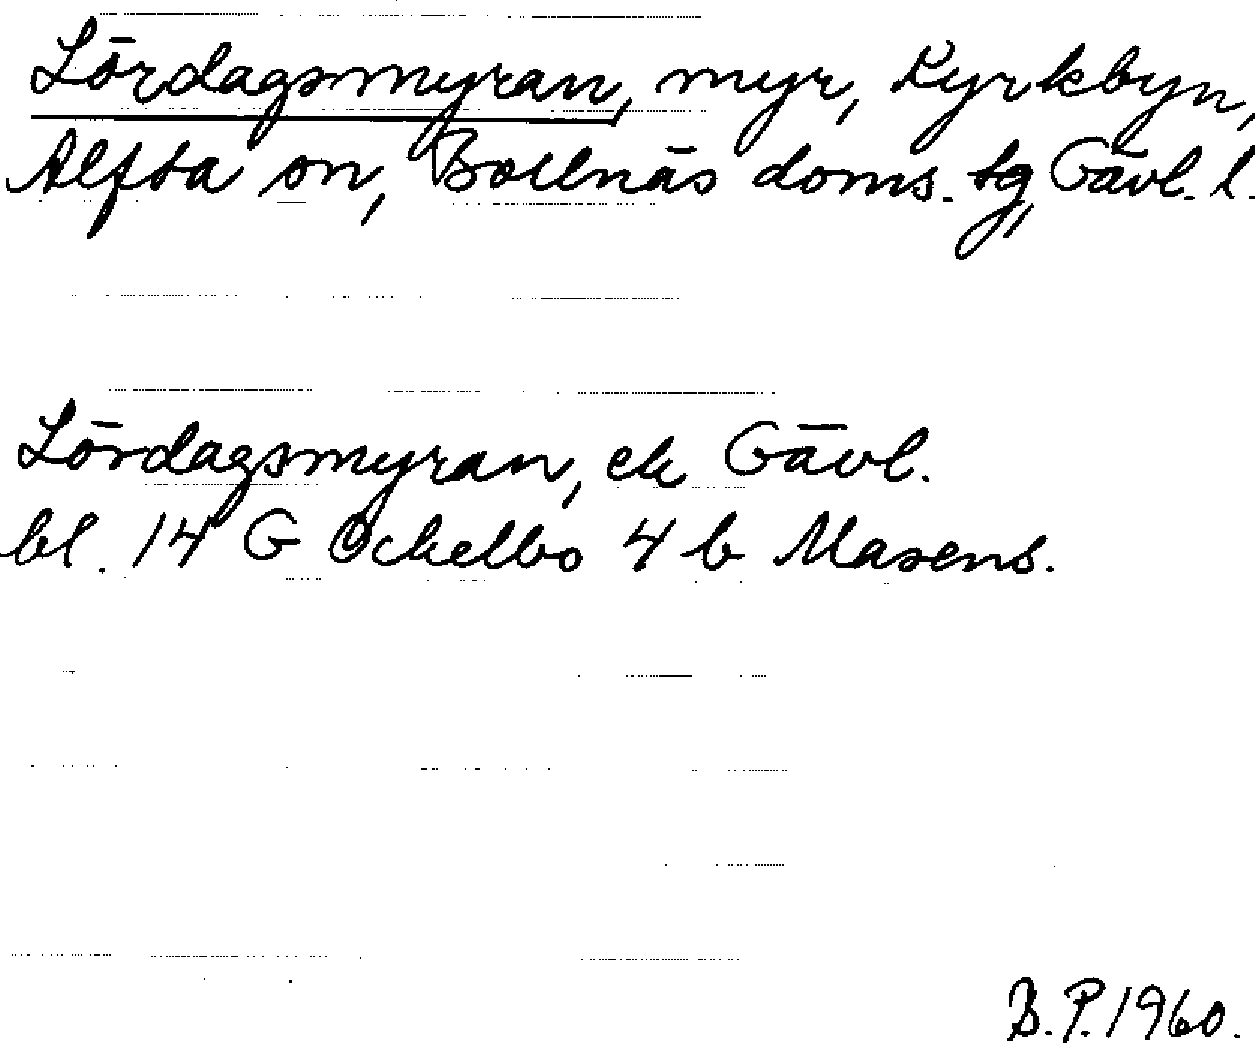 Lördagsmyran, myr, Kyrkbyn,
Alfta sn, Bollnäs doms. tg, Gävl. l.
Lördagsmyran, ek Gävl.
bl. 14 G Ockelbo 4 b Masens.
B. P. 1960.